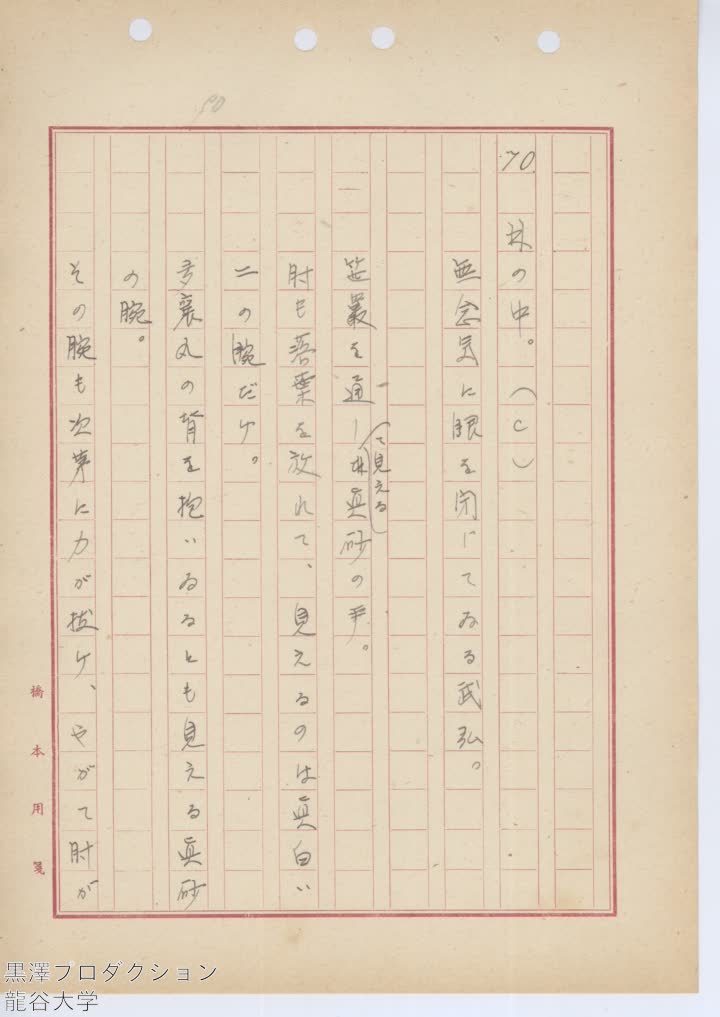 50
70 林の中。(C)
無念気に眼を閉じてゐる武弘。
笹叢を通して見える真砂の手。
肘も落葉を放れて、見えるのは真白い
二の腕だけ。
多襄丸の背を抱いゐるとも見える真砂
の腕。
その腕も次第に力が抜け、やがて肘が
橋本用箋
黒澤プロダクション
龍谷大学